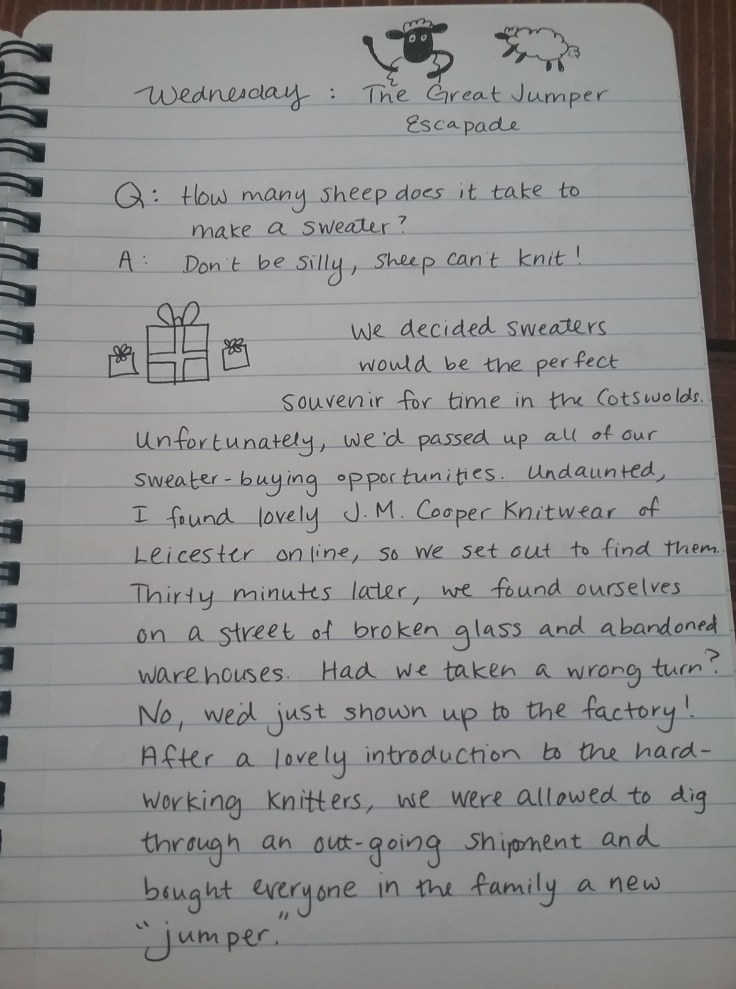 Wednesday : The Great Jumper
Escapade
Q: How many sheep does it take to
make a sweater?
A: Don't be silly, sheep can't knit!
We decided sweaters
would be the perfect
souvenir for time in the Cotswolds.
Unfortunately, we'd passed up all of our
sweater-buying opportunities. Undaunted,
I found lovely J.M. Cooper Knitwear of
Leicester online, so we set out to find them.
Thirty minutes later, we found ourselves
on a street of broken glass and abandoned
warehouses. Had we taken a wrong turn?
No, we'd just shown up to the factory!
After a lovely introduction to the hard-
working knitters, we were allowed to dig
through an out-going shipment and
bought everyone in the family a new
"jumper."